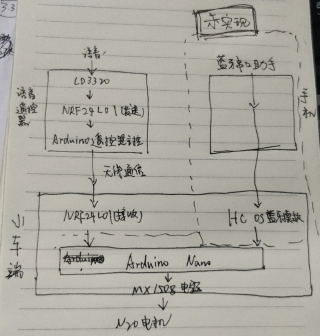 未实现
语音
蓝牙串口助手
语音遥控器
LD3320
手机
NRF24L01(发送)
Arduino遥控器主控
无线通信
小车端
NRF24L01(接收)
HC 05 蓝牙模块
Arduino Nano
MX1508 电路
N20电机